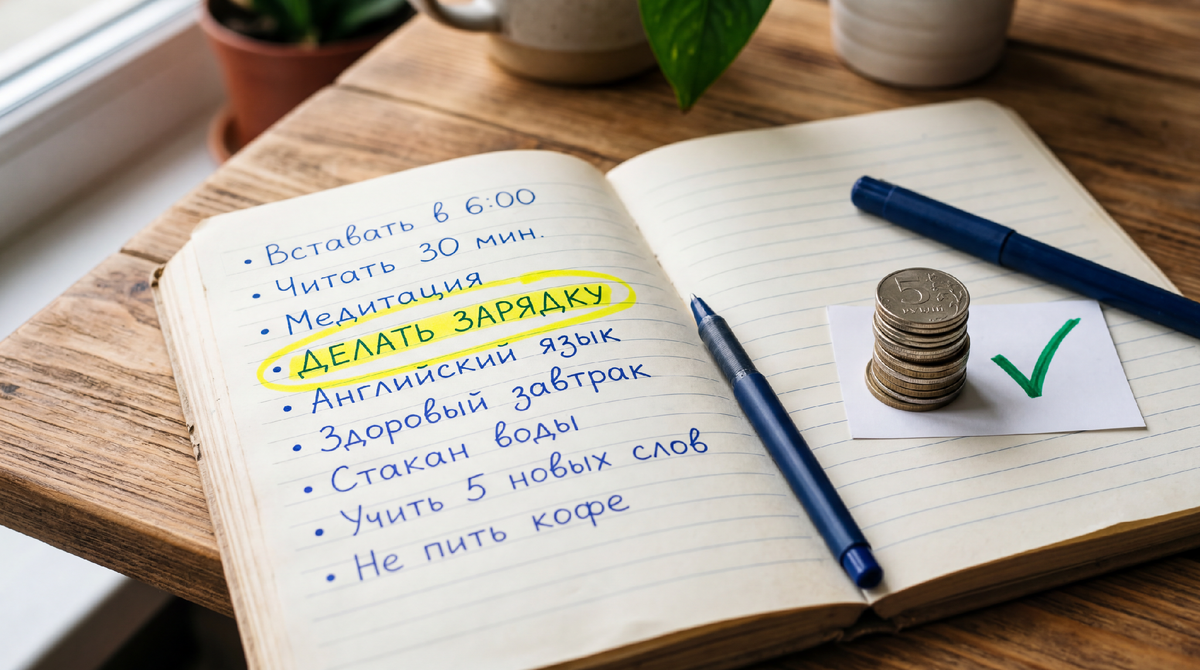 • Вставать в 6:00
• Читать 30 мин.
• Медитация
• ДЕЛАТЬ ЗАРЯДКУ
• Английский язык
• Здоровый завтрак
• Стакан воды
• Учить 5 новых слов
• Не пить кофе
5
РУБЛЕЙ